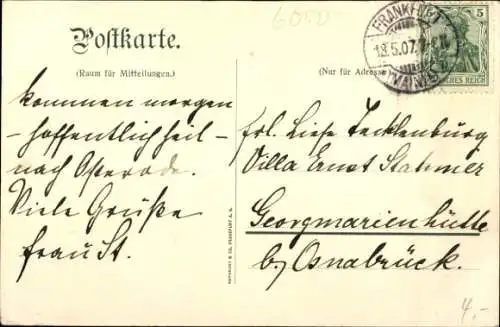 6000
Postkarte.
(Raum für Mitteilungen.)
(Nur für Adresse)
FRANKFURT
18.5.07.
(MAIN)
5
DEUTSCHES REICH
kommen morgen
- hoffentlich heil -
nach Osterode.
Viele Grüße
Frau St.
Frl. Liese Tecklenburg
Villa Ernst Stahmer
Georgmarienhütte
b/ Osnabrück.
4,-